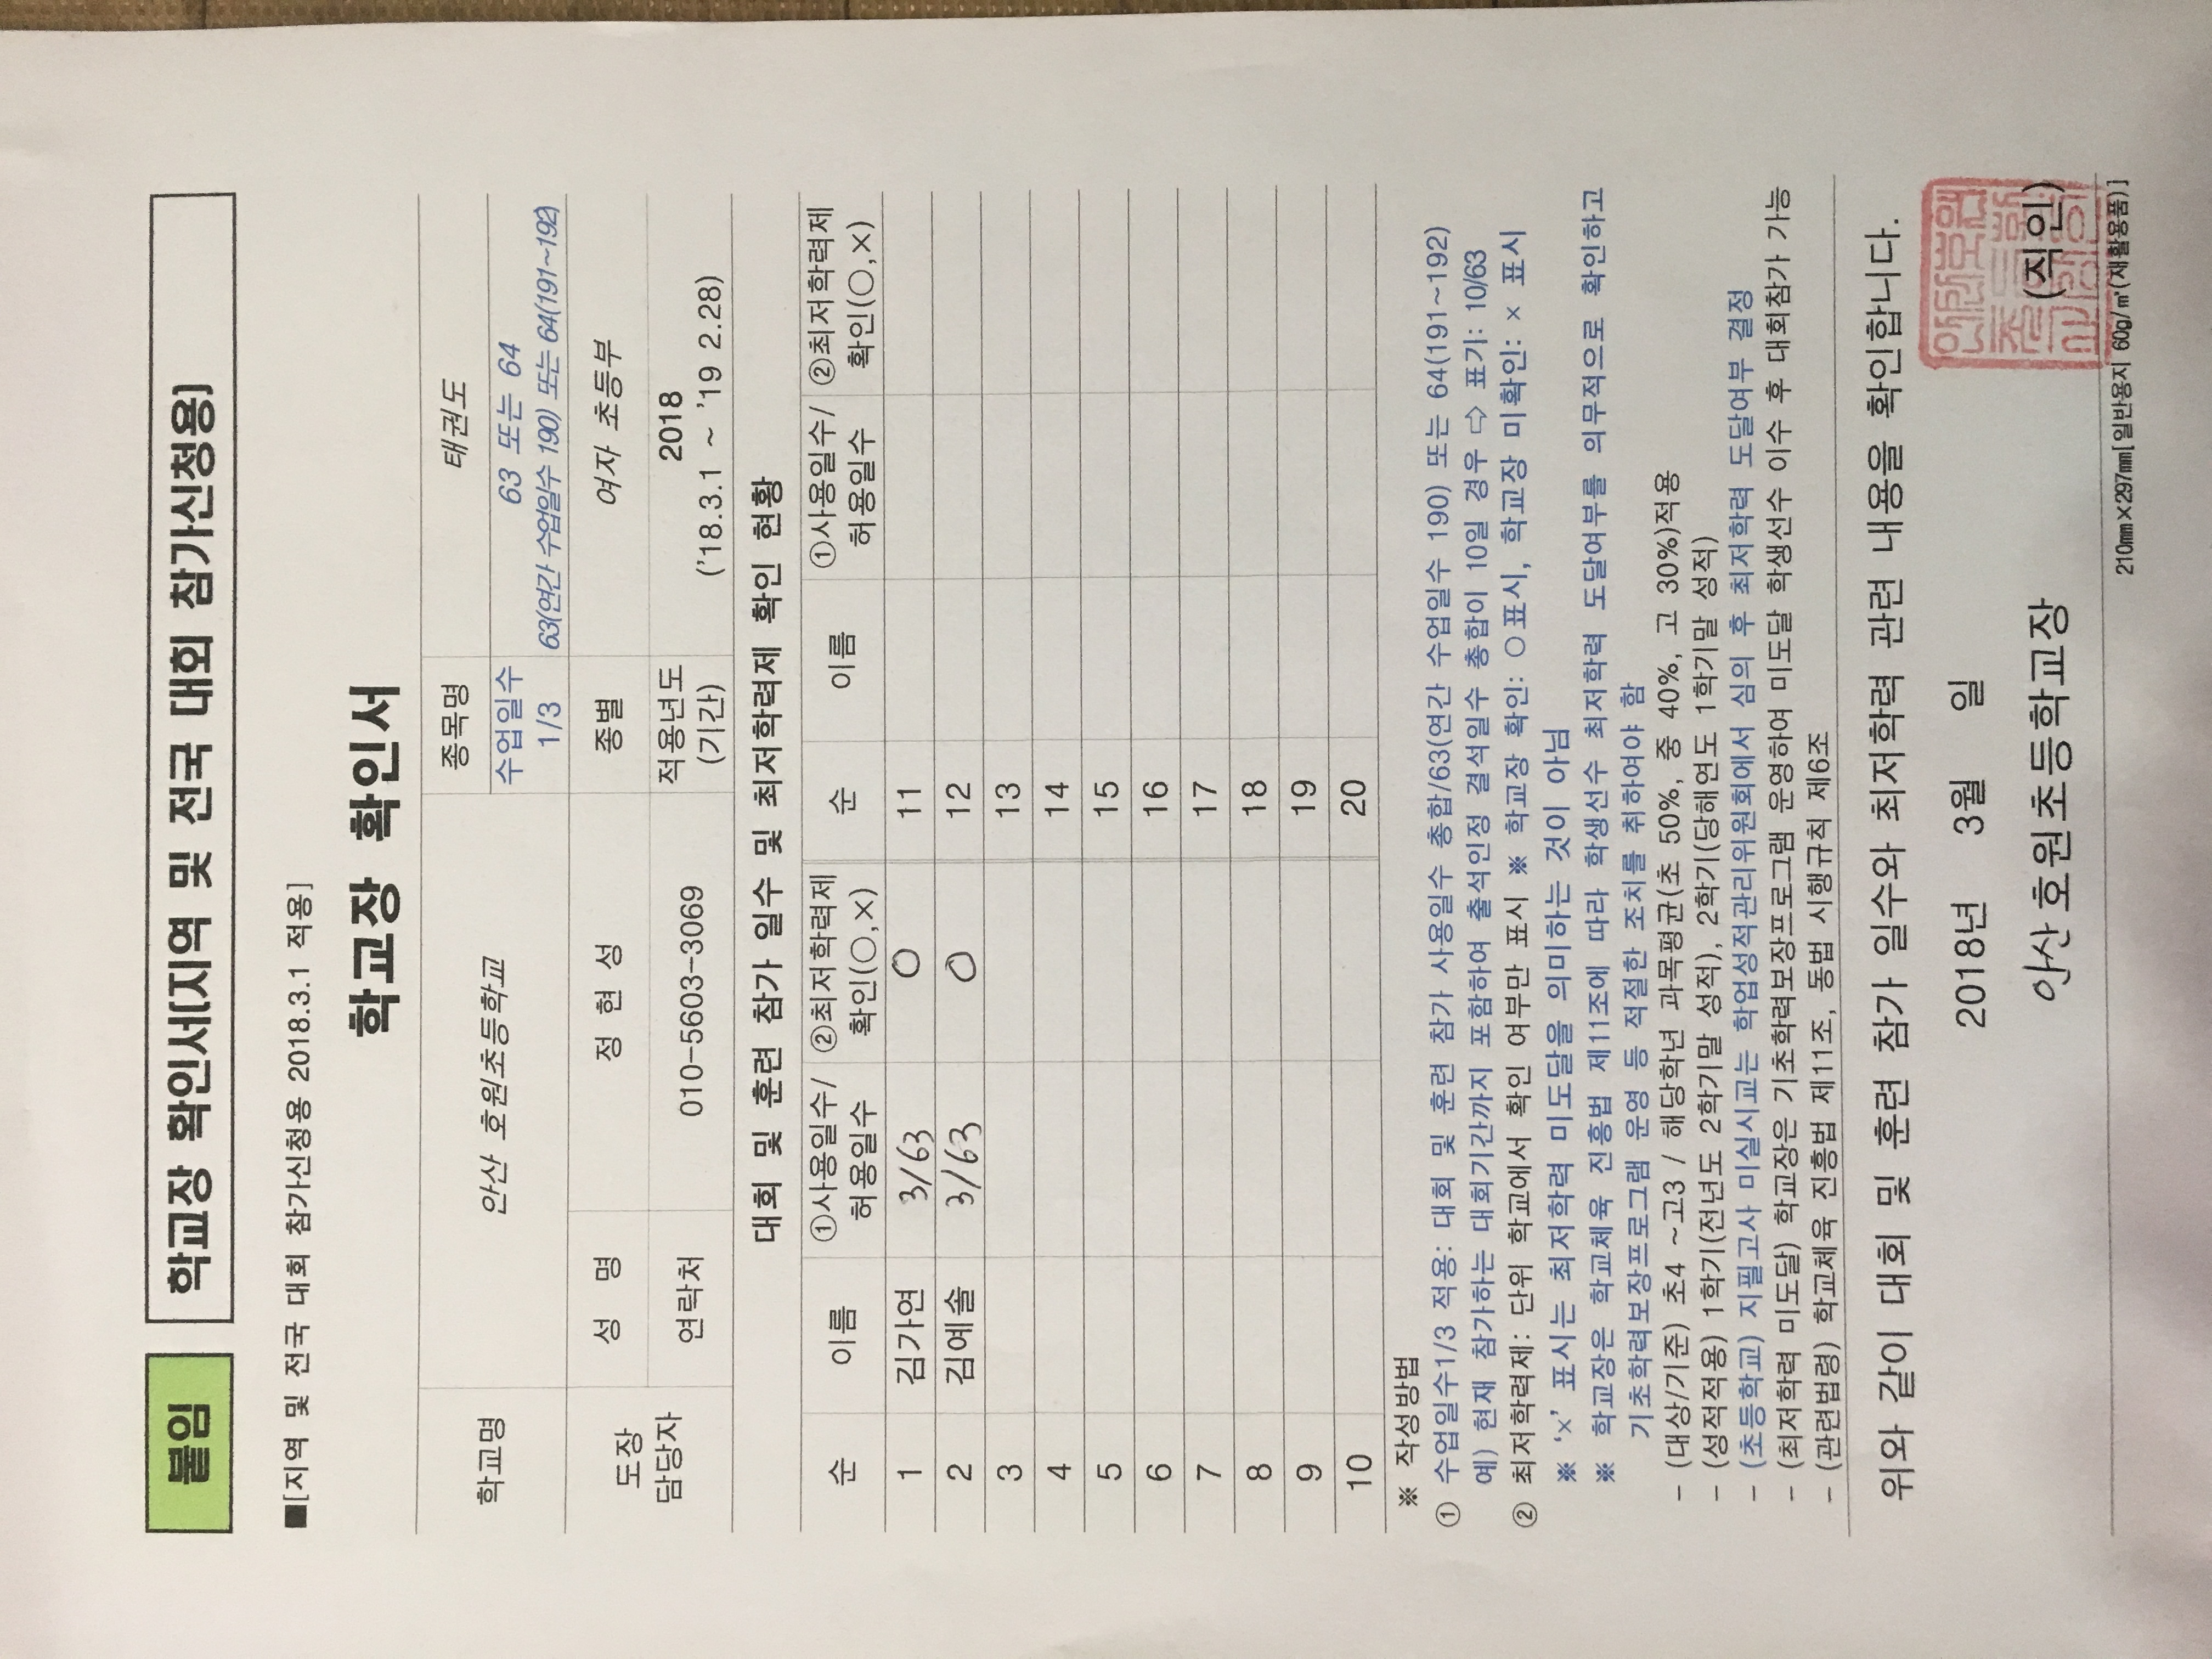 붙임 학교장 확인서(지역 및 전국 대회 참가신청용)
■[지역 및 전국 대회 참가신청용 2018.3.1 적용]
학교장 확인서
학교명 안산 호원초등학교 종목명 태권도
수업일수 1/3 63 또는 64
63(연간 수업일수 190) 또는 64(191~192)
도장 담당자 성 명 정 현 성 종별 여자 초등부
연락처 010-5603-3069 적용년도 (기간) 2018
('18.3.1 ~ '19 2.28)
대회 및 훈련 참가 일수 및 최저학력제 확인 현황
순 이름 ①사용일수/허용일수 ②최저학력제 확인(○,×) 순 이름 ①사용일수/허용일수 ②최저학력제 확인(○,×)
1 김가연 3/63 ○ 11
2 김예솔 3/63 ○ 12
3 13
4 14
5 15
6 16
7 17
8 18
9 19
10 20
※ 작성방법
① 수업일수1/3 적용: 대회 및 훈련 참가 사용일수 총합/63(연간 수업일수 190) 또는 64(191~192)
예) 현재 참가하는 대회기간까지 포함하여 출석인정 결석일수 총합이 10일 경우 ⇨ 표기: 10/63
② 최저학력제: 단위 학교에서 확인 여부만 표시 ※ 학교장 확인: ○표시, 학교장 미확인: × 표시
※ ‘×’ 표시는 최저학력 미도달을 의미하는 것이 아님
※ 학교장은 학교체육 진흥법 제11조에 따라 학생선수 최저학력 도달여부를 의무적으로 확인하고
기초학력보장프로그램 운영 등 적절한 조치를 취하여야 함
- (대상/기준) 초4 ~고3 / 해당학년 과목평균(초 50%, 중 40%, 고 30%)적용
- (성적적용) 1학기(전년도 2학기말 성적), 2학기(당해연도 1학기말 성적)
- (초등학교) 지필고사 미실시교는 학업성적관리위원회에서 심의 후 최저학력 도달여부 결정
- (최저학력 미도달) 학교장은 기초학력보장프로그램 운영하여 미도달 학생선수 이수 후 대회참가 가능
- (관련법령) 학교체육 진흥법 제11조, 동법 시행규칙 제6조
위와 같이 대회 및 훈련 참가 일수와 최저학력 관련 내용을 확인합니다.
2018년 3월 일
안산호원초등학교장 (직인)
210㎜×297㎜[일반용지 60g/㎡(재활용품)]